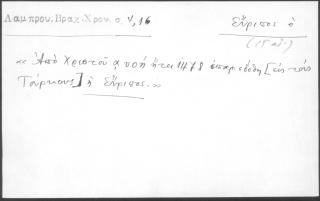 Λαμπρου, Βραχ. Χρον. σ. 4, 16
Εὔριπος ὁ
(15 αἰ.)
« Ἀπὸ Χριστοῦ ᾳυοή ἤτοι 1478 ἐπαρεδόθη [εἰς τοὺς
Τούρκους] ἡ Εὔριπος. »